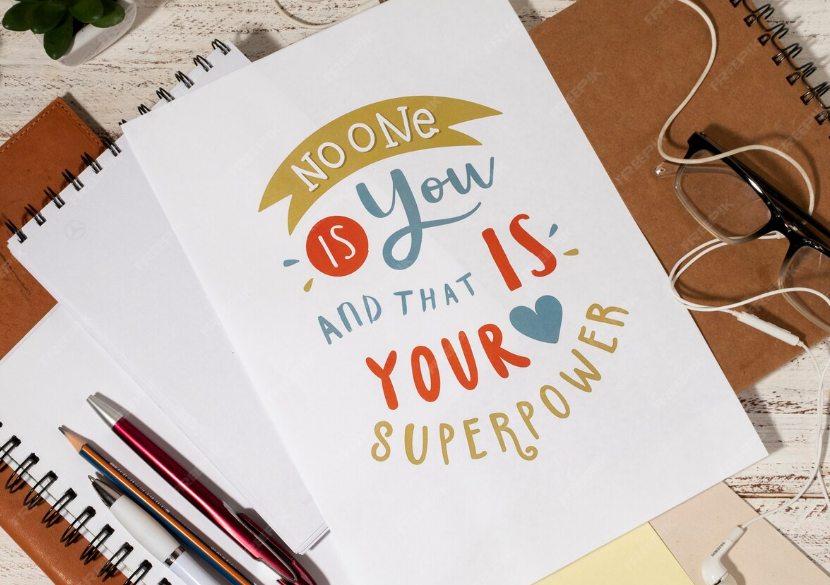 NO ONE
IS You
AND THAT IS
YOUR
SUPERPOWER